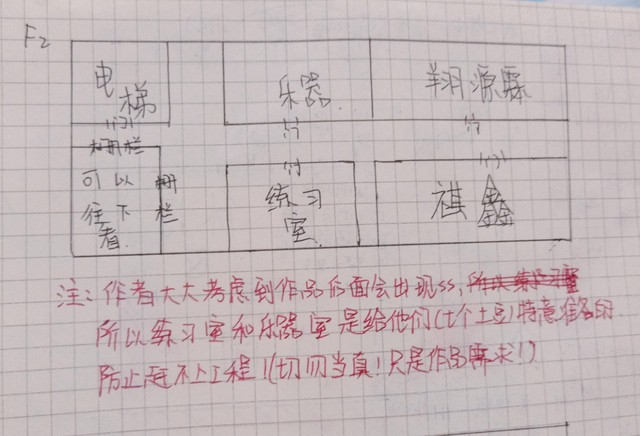 F2
电梯
乐器
翔源霖
栅栏
可以往下看
栅栏
练习室
祺鑫
注:作者大大考虑到作品后面会出现ss,
所以练习室和乐器室是给他们(七个土豆)特意准备的
防止赶不上工程!(切勿当真!只是作品需求!)